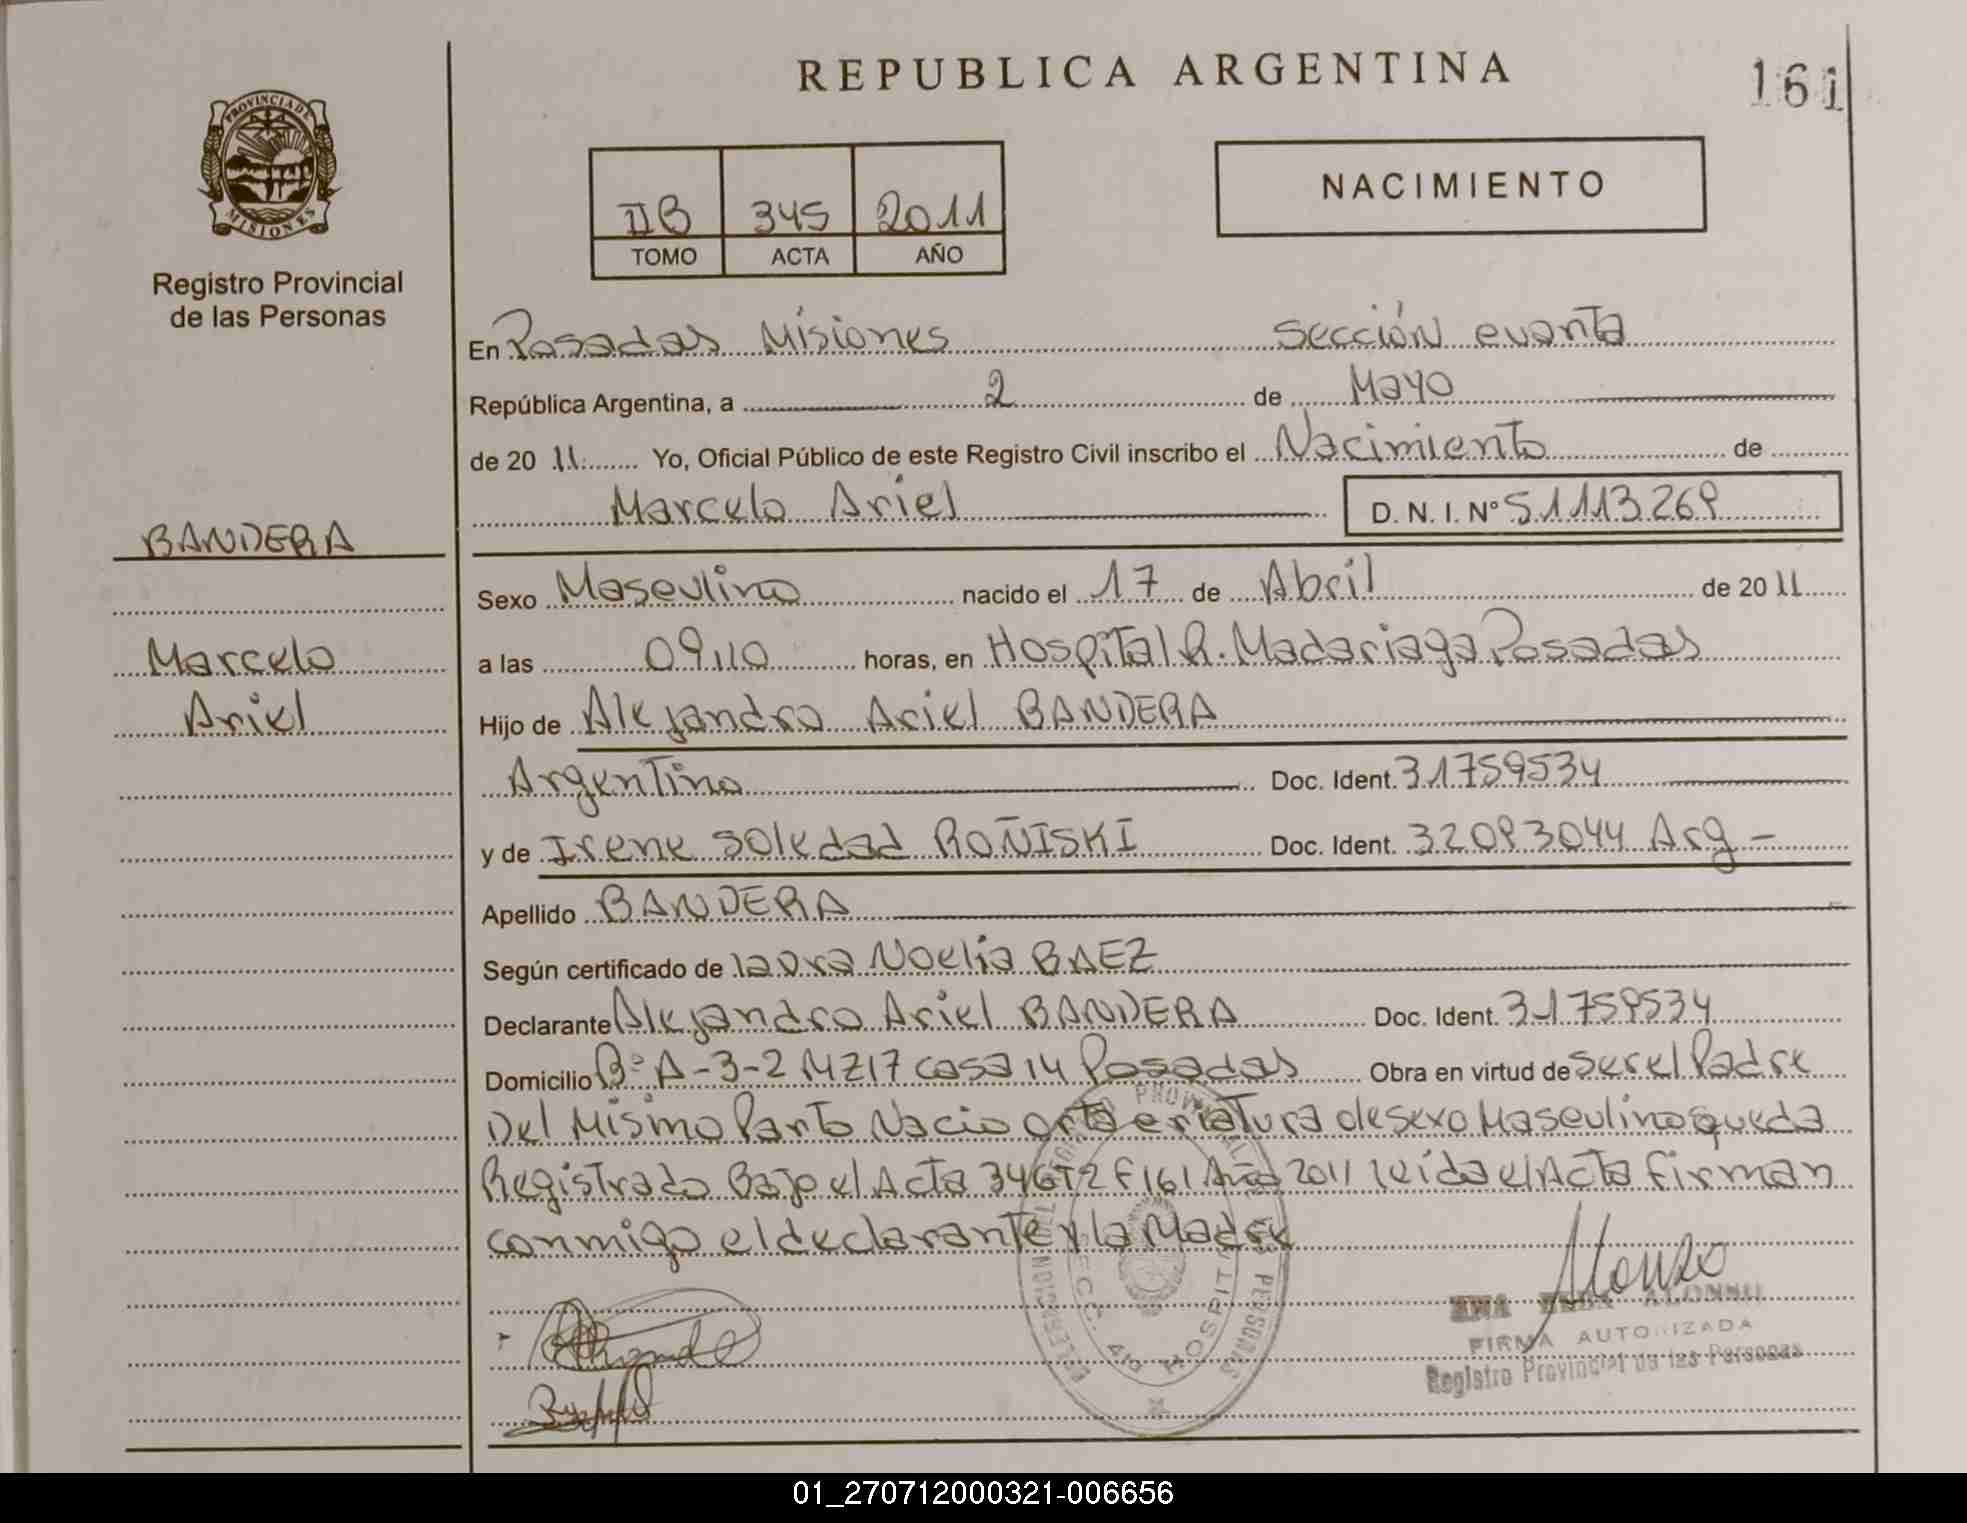 REPUBLICA ARGENTINA
161
PROVINCIA DE MISIONES
Registro Provincial
de las Personas
IIB 345 2011
TOMO ACTA AÑO
NACIMIENTO
En Posadas Misiones sección cuarta
República Argentina, a 2 de Mayo
de 2011 Yo, Oficial Público de este Registro Civil inscribo el Nacimiento de
Marcelo Ariel D. N. I. Nº 51113269
BANDERA
Marcelo
Ariel
Sexo Masculino nacido el 17 de Abril de 2011
a las 09,10 horas, en Hospital R. Madariaga Posadas
Hijo de Alejandro Ariel BANDERA
Argentino Doc. Ident. 31759534
y de Irene Soledad ROÑISKI Doc. Ident. 32093044 Arg -
Apellido BANDERA
Según certificado de laura Noelia BAEZ
Declarante Alejandro Ariel BANDERA Doc. Ident. 31759534
Domicilio Bº A-3-2 MZ17 casa 14 Posadas Obra en virtud de ser el Padre
Del Mismo Parto Nacio otra criatura de sexo Masculino queda
Registrado Bajo el Acta 346 T2 F161 Año 2011 leída el Acta firman
conmigo el declarante y la Madre
Alonso
ALONSO
FIRMA AUTORIZADA
Registro Provincial de las Personas
01_270712000321-006656